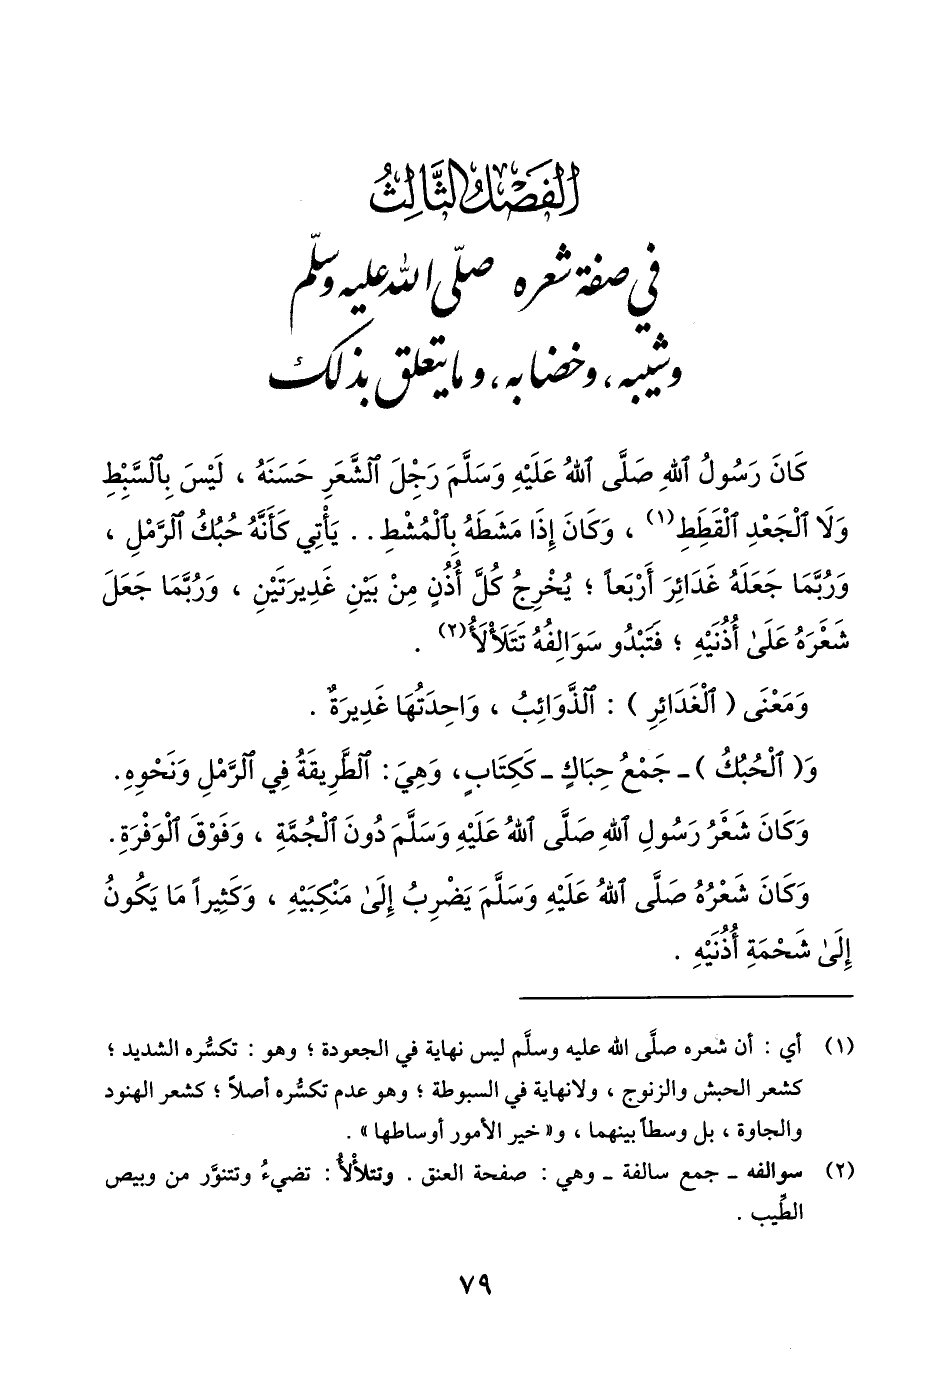 الفصل الثالث
في صفة شعره صلّى الله عليه وسلّم
وشيبه، وخضابه، وما يتعلق بذلك
كَانَ رَسُولُ ٱللهِ صَلَّى ٱللهُ عَلَيْهِ وَسَلَّمَ رَجِلَ ٱلشَّعَرِ حَسَنَهُ ، لَيْسَ بِٱلسَّبْطِ
وَلَا ٱلْجَعْدِ ٱلْقَطِطِ(١) ، وَكَانَ إِذَا مَشَطَهُ بِٱلْمُشْطِ . . يَأْتِي كَأَنَّهُ حُبُكُ ٱلرَّمْلِ ،
وَرُبَّمَا جَعَلَهُ غَدَائِرَ أَرْبَعاً ؛ يُخْرِجُ كُلَّ أُذُنٍ مِنْ بَيْنِ غَدِيرَتَيْنِ ، وَرُبَّمَا جَعَلَ
شَعْرَهُ عَلَىٰ أُذُنَيْهِ ؛ فَتَبْدُو سَوَالِفُهُ تَتَلَأْلَأُ(٢) .
وَمَعْنَى ( ٱلْغَدَائِرِ ) : ٱلذَّوَائِبُ ، وَاحِدَتُهَا غَدِيرَةٌ .
وَ( ٱلْحُبُكُ ) ـ جَمْعُ حِبَاكٍ ـ كَكِتَابٍ، وَهِيَ : ٱلطَّرِيقَةُ فِي ٱلرَّمْلِ وَنَحْوِهِ.
وَكَانَ شَعْرُ رَسُولِ ٱللهِ صَلَّى ٱللهُ عَلَيْهِ وَسَلَّمَ دُونَ ٱلْجُمَّةِ ، وَفَوْقَ ٱلْوَفْرَةِ.
وَكَانَ شَعْرُهُ صَلَّى ٱللهُ عَلَيْهِ وَسَلَّمَ يَضْرِبُ إِلَىٰ مَنْكِبَيْهِ ، وَكَثِيراً مَا يَكُونُ
إِلَىٰ شَحْمَةِ أُذُنَيْهِ .
(١) أي : أن شعره صلَّى الله عليه وسلَّم ليس نهاية في الجعودة ؛ وهو : تكسُّره الشديد ؛
كشعر الحبش والزنوج ، ولانهاية في السبوطة ؛ وهو عدم تكسُّره أصلاً ؛ كشعر الهنود
والجاوة ، بل وسطاً بينهما ، و« خير الأمور أوساطها » .
(٢) سوالفه ـ جمع سالفة ـ وهي : صفحة العنق . وتتلألأُ : تضيءُ وتتنوَّر من وبيص
الطِّيب .
٧٩